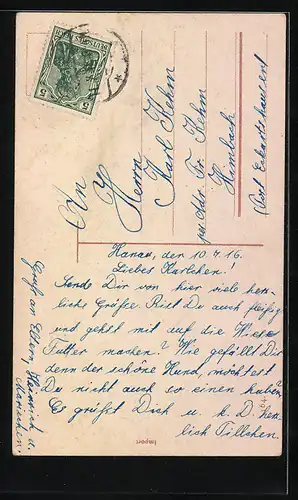 An
Herrn
Karl Kehm
per Adr. Fr. Kehm
Humbach
(Post Eckartshausen)
Hanau, den 10.4.16.
Liebes Karlchen!
Sende Dir von hier viele herz-
liche Grüße. Bist Du auch fleißig
und gehst mit auf die Wiese
Futter machen? Wie gefällt Dir
denn der schöne Hund, möchtest
Du nicht auch so einen haben?
Es grüßt Dich u. k. D. herz-
lich Tillchen.
Gruß an Eltern, Heinrich u.
Mariechen.
Import
DEUTSCHES REICH
5 5